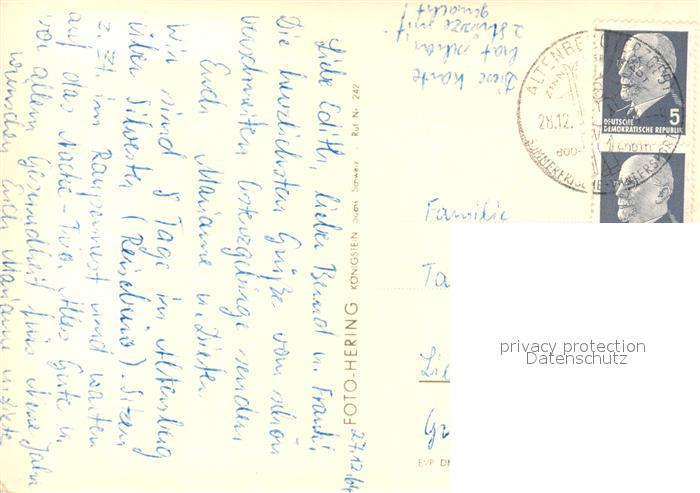 27.12.64
Liebe Edith, lieber Bernd u. Frank!
Die herzlichsten Grüße vom schön
verschneiten Osterzgebirge senden
Euch Marianne u. Dieter
Wir sind 8 Tage in Altenberg
über Silvester (Reisebüro). Sitzen
z. Zt. im Raupennest und warten
auf das Nacht-Taxi. Alles Gute u.
vor allem Gesundheit fürs Neue Jahr
wünschen Euch Marianne u. Dieter
Diese Karte
hat schon
2 Stürze mit-
gemacht!
FOTO-HERING KÖNIGSTEIN Sächs. Schweiz Ruf Nr. 242
ALTENBERG
28.12.
800-
SOMMERFRISCHE - WINTERSPORT
5
DEUTSCHE
DEMOKRATISCHE REPUBLIK
Familie
Ta
Gr
EVP DM
privacy protection
Datenschutz